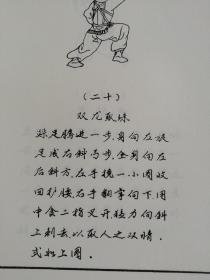 (二十)
双龙取珠
踩足腾进一步,身向左旋
足成右斜弓步,全身向左
后斜方,左手挽一小圈收
回护腰,右手翻掌向下圈
中食二指叉开,猛力向斜
上刺去,以取人之双睛.
式如上图.